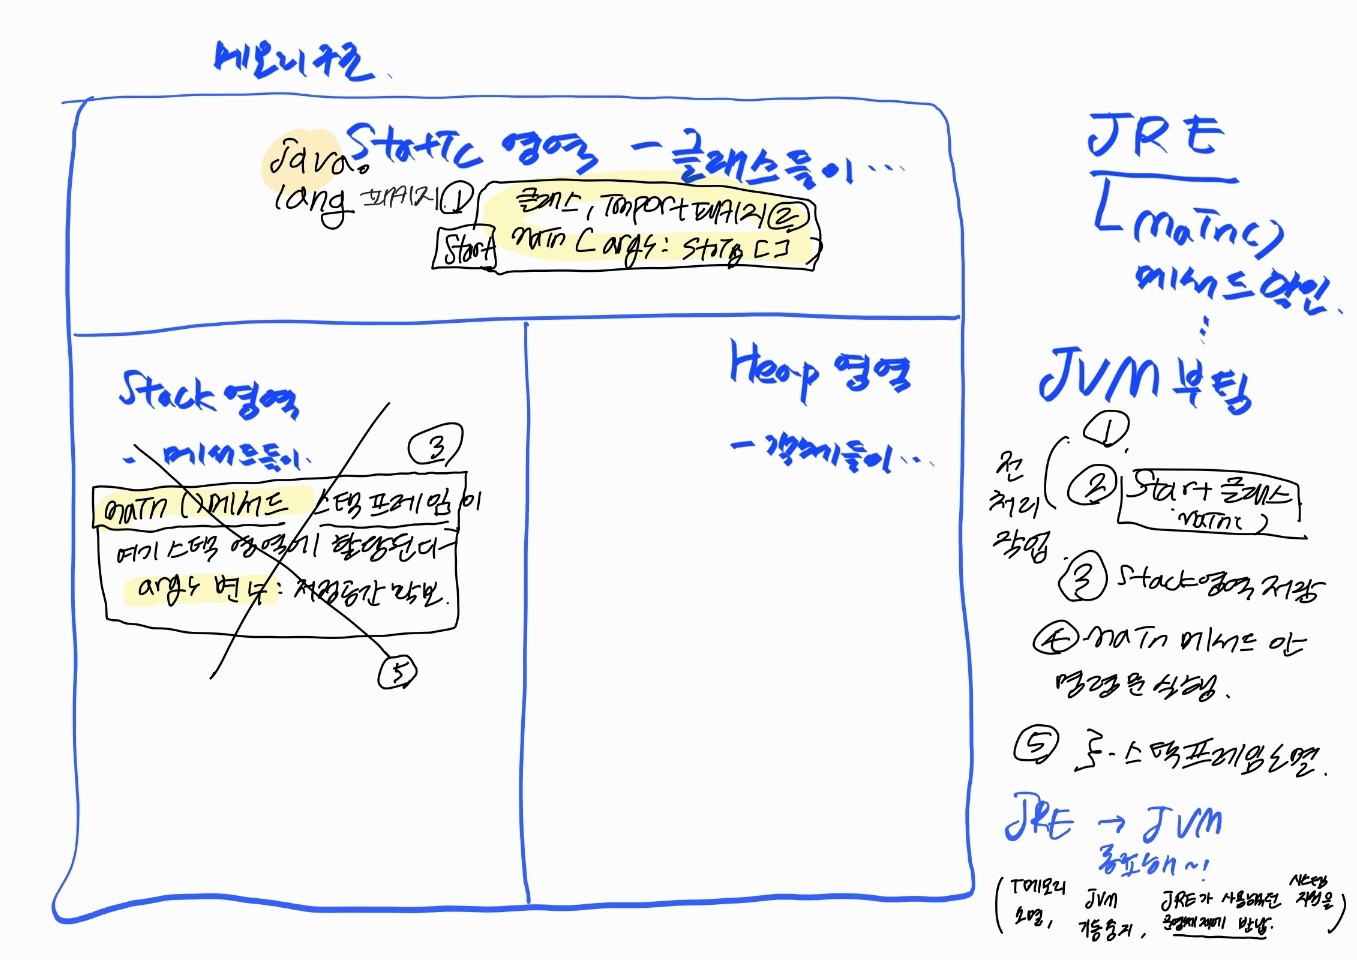 메모리구조
Static 영역 - 클래스들이...
java.
lang 패키지 ①
클래스, import 패키지 ②
Start
main ( args: string [] )
Stack 영역
- 메서드들이.
③
main ( ) 메서드 스택프레임이
여기 스택 영역에 할당된다-
args 변수: 저장공간 확보.
⑤
Heap 영역
- 객체들이...
JRE
main()
메서드 확인.
JVM 부팅
전
처리
작업
①
② Start 클래스
main()
③ Stack영역 저장
④ main 메서드 안
명령문 실행.
⑤ } - 스택프레임소멸.
JRE → JVM
종료해~!
( T메모리
소멸,
JVM
기능중지,
JRE가 사용했던 시스템
자원을
운영체제에 반납. )